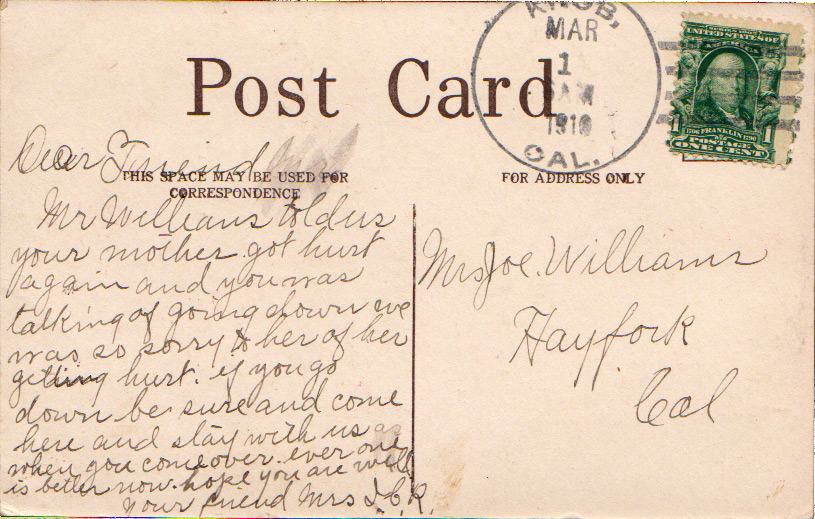 Post Card
KNOB,
MAR
1
AM
1910
CAL.
UNITED STATES OF
AMERICA
1706 FRANKLIN 1790
1 1
POSTAGE
ONE CENT
Dear Friend
THIS SPACE MAY BE USED FOR
CORRESPONDENCE
FOR ADDRESS ONLY
Mr Williams told us
your mother got hurt
again and you was
talking of going down we
was so sorry to her of her
getting hurt. if you go
down be sure and come
here and stay with us as
when you come over. ever one
is better now. hope you are well
Your friend Mrs I. C. R.
Mrs Joe. Williams
Hayfork
Cal